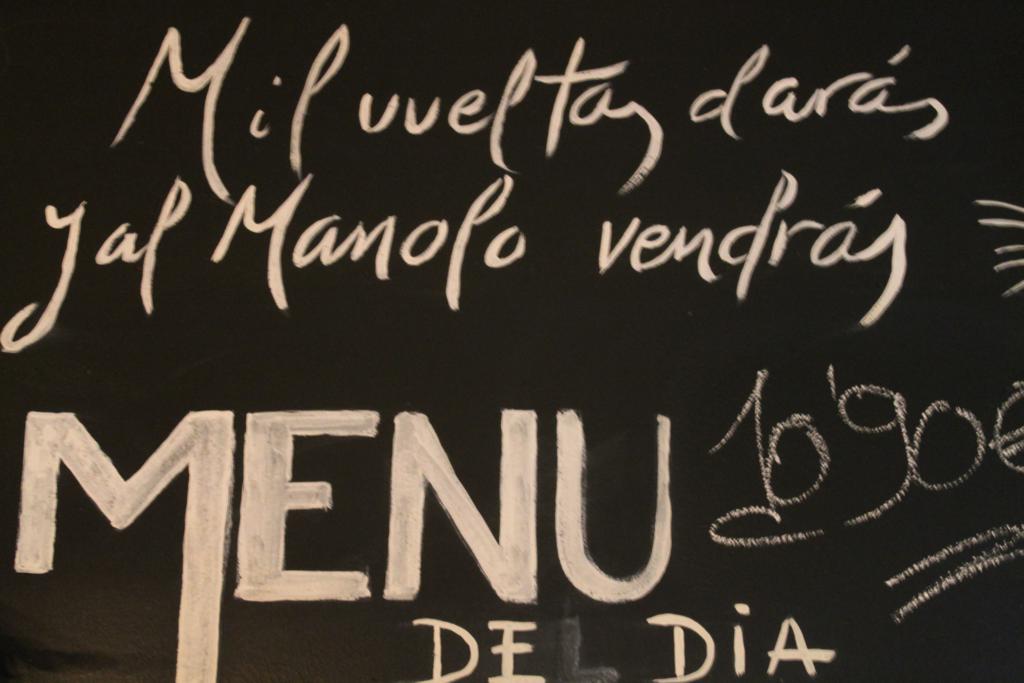 Mil vueltas darás
y al Manolo vendrás
MENU 10'90€
DEL DiA